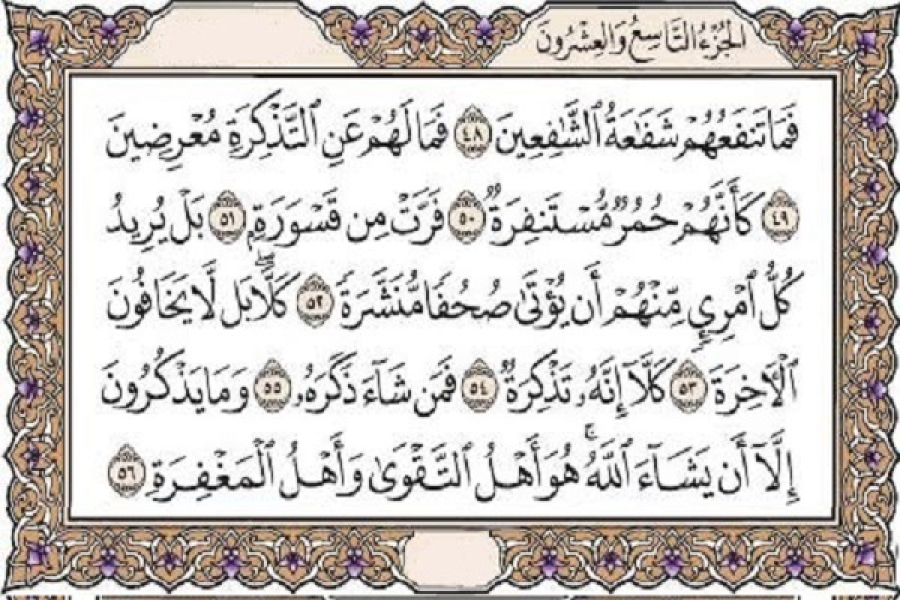 الجُزْءُ التَّاسِعُ وَالعِشْرُونَ
فَمَا تَنفَعُهُمْ شَفَٰعَةُ ٱلشَّٰفِعِينَ ٤٨ فَمَا لَهُمْ عَنِ ٱلتَّذْكِرَةِ مُعْرِضِينَ
٤٩ كَأَنَّهُمْ حُمُرٌ مُّسْتَنفِرَةٌ ٥٠ فَرَّتْ مِن قَسْوَرَةٍۭ ٥١ بَلْ يُرِيدُ
كُلُّ ٱمْرِئٍ مِّنْهُمْ أَن يُؤْتَىٰ صُحُفًا مُّنَشَّرَةً ٥٢ كَلَّا ۖ بَل لَّا يَخَافُونَ
ٱلْـَٔاخِرَةَ ٥٣ كَلَّآ إِنَّهُۥ تَذْكِرَةٌ ٥٤ فَمَن شَآءَ ذَكَرَهُۥ ٥٥ وَمَا يَذْكُرُونَ
إِلَّآ أَن يَشَآءَ ٱللَّهُ ۚ هُوَ أَهْلُ ٱلتَّقْوَىٰ وَأَهْلُ ٱلْمَغْفِرَةِ ٥٦